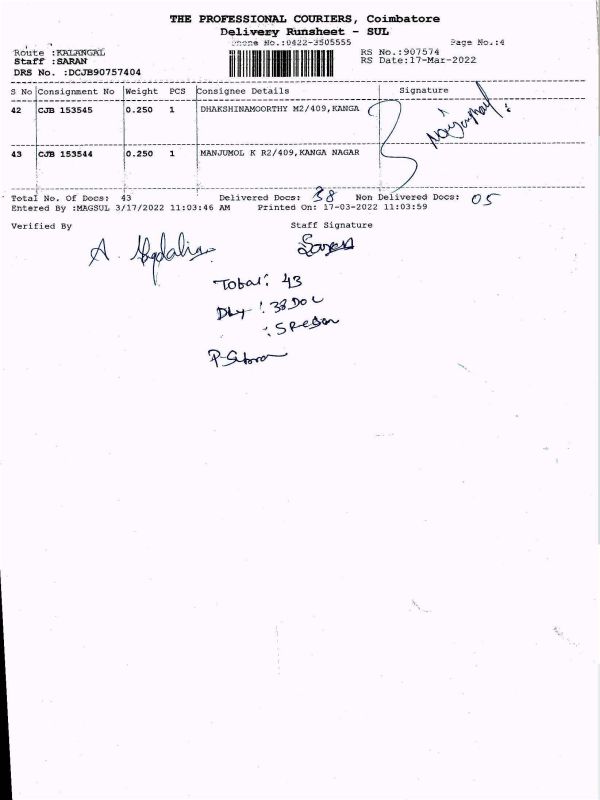 THE PROFESSIONAL COURIERS, Coimbatore
Delivery Runsheet - SUL
Phone No.:0422-3505555 Page No.:4
Route :KALANGAL RS No.:907574
Staff :SARAN RS Date:17-Mar-2022
DRS No. :DCJB90757404
S No Consignment No Weight PCS Consignee Details Signature
42 CJB 153545 0.250 1 DHAKSHINAMOORTHY M2/409,KANGA
43 CJB 153544 0.250 1 MANJUMOL K R2/409,KANGA NAGAR
Total No. Of Docs: 43 Delivered Docs: 38 Non Delivered Docs: 05
Entered By :MAGSUL 3/17/2022 11:03:46 AM Printed On: 17-03-2022 11:03:59
Verified By Staff Signature
Saran
Total: 43
Dly : 38 Doc
: 5